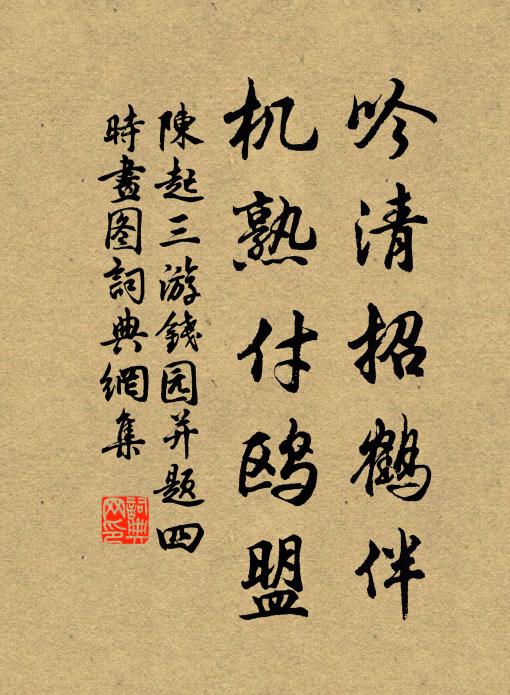 吟清招鹤伴
机熟付鸥盟
陳起三游錢园并题四
時畫图詞典網集
詞典网印